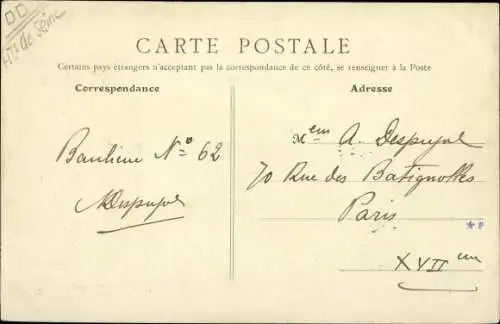 Hts de Seine
CARTE POSTALE
Certains pays étrangers n'acceptant pas la correspondance de ce côté, se renseigner à la Poste
Correspondance
Adresse
Banlieue No 62
ADespujol
Mem A. Despujol
70 Rue des Batignolles
Paris
XVIIem